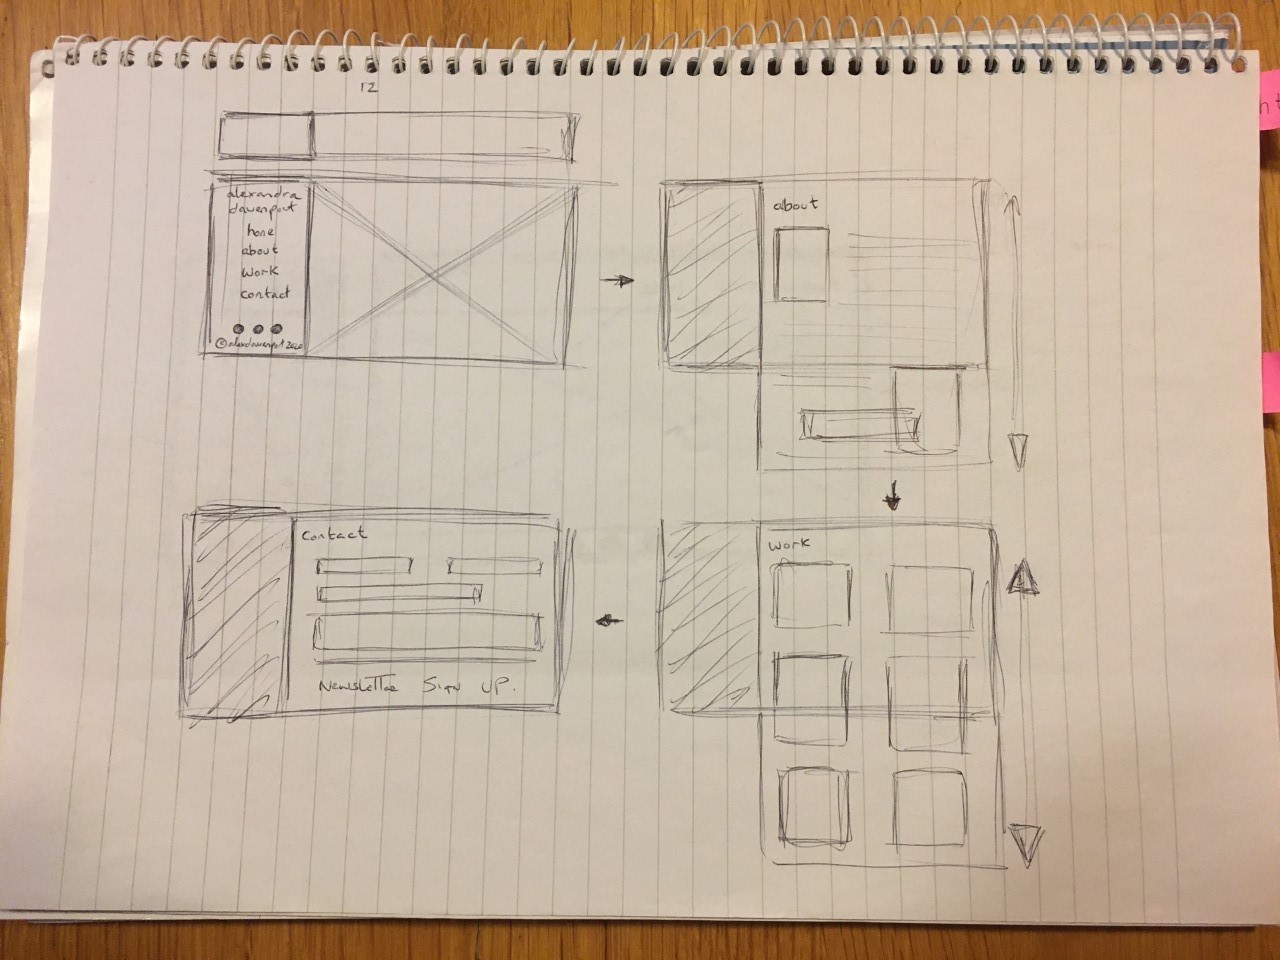 12
alexandra
davenport
home
about
work
contact
©alexdavenport 2020
about
contact
Newsletter Sign UP.
work